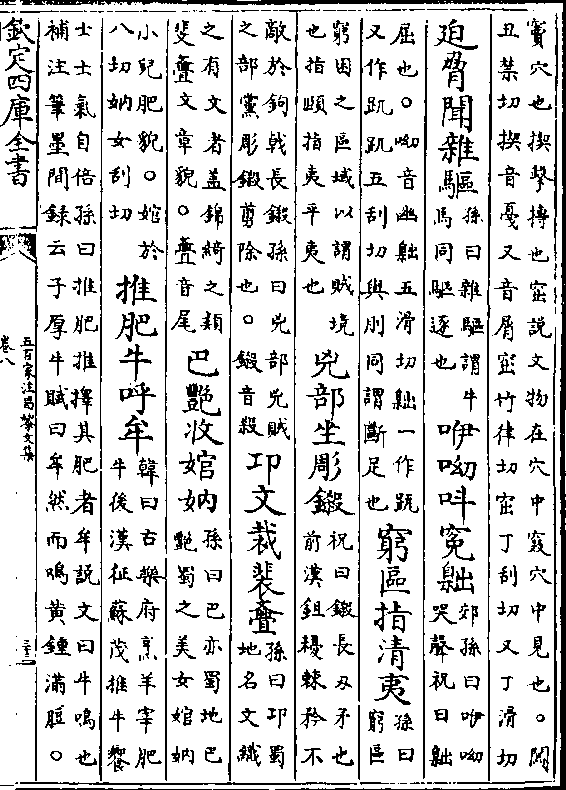 竇穴也揳擊摶也窋說文物在穴中窡穴中見也。闖
丑禁切揳音戛又音屑窋竹律切窡丁刮切又丁滑切
迫脅聞雜驅
孫曰雜驅謂牛
馬同驅逐也
咿呦叫冤䠳
郊孫曰咿呦
哭聲祝曰䠳
屈也。呦音幽䠳五滑切䠳一作趴
又作趴趴五刮切與刖同謂斷足也
窮區指清夷
孫曰
窮區
窮困之區域以謂賊境
也指頤指夷平夷也
兇部坐彫鎩
祝曰鎩長刃矛也
前漢鉏耰棘矜不
敵於鉤戟長鎩孫曰兇部兇賊
之部黨彫鎩剪除也。鎩音殺
邛文裁裴亹
孫曰邛蜀
地名文織
之有文者蓋錦綺之類
斐亹文章貌。亹音尾
巴艷收婠妠
孫曰巴亦蜀地巴
艷蜀之美女婠妠
小兒肥貌。婠於
八切妠女刮切
推肥牛呼牟
韓曰古樂府烹羊宰肥
牛後漢征蘇茂推牛饗
士士氣自倍孫曰推肥推擇其肥者牟說文曰牛鳴也
補注筆墨間錄云子厚牛賦曰牟然而鳴黃鍾滿脰。
欽定四庫全書
五百家注昌黎文集
卷八